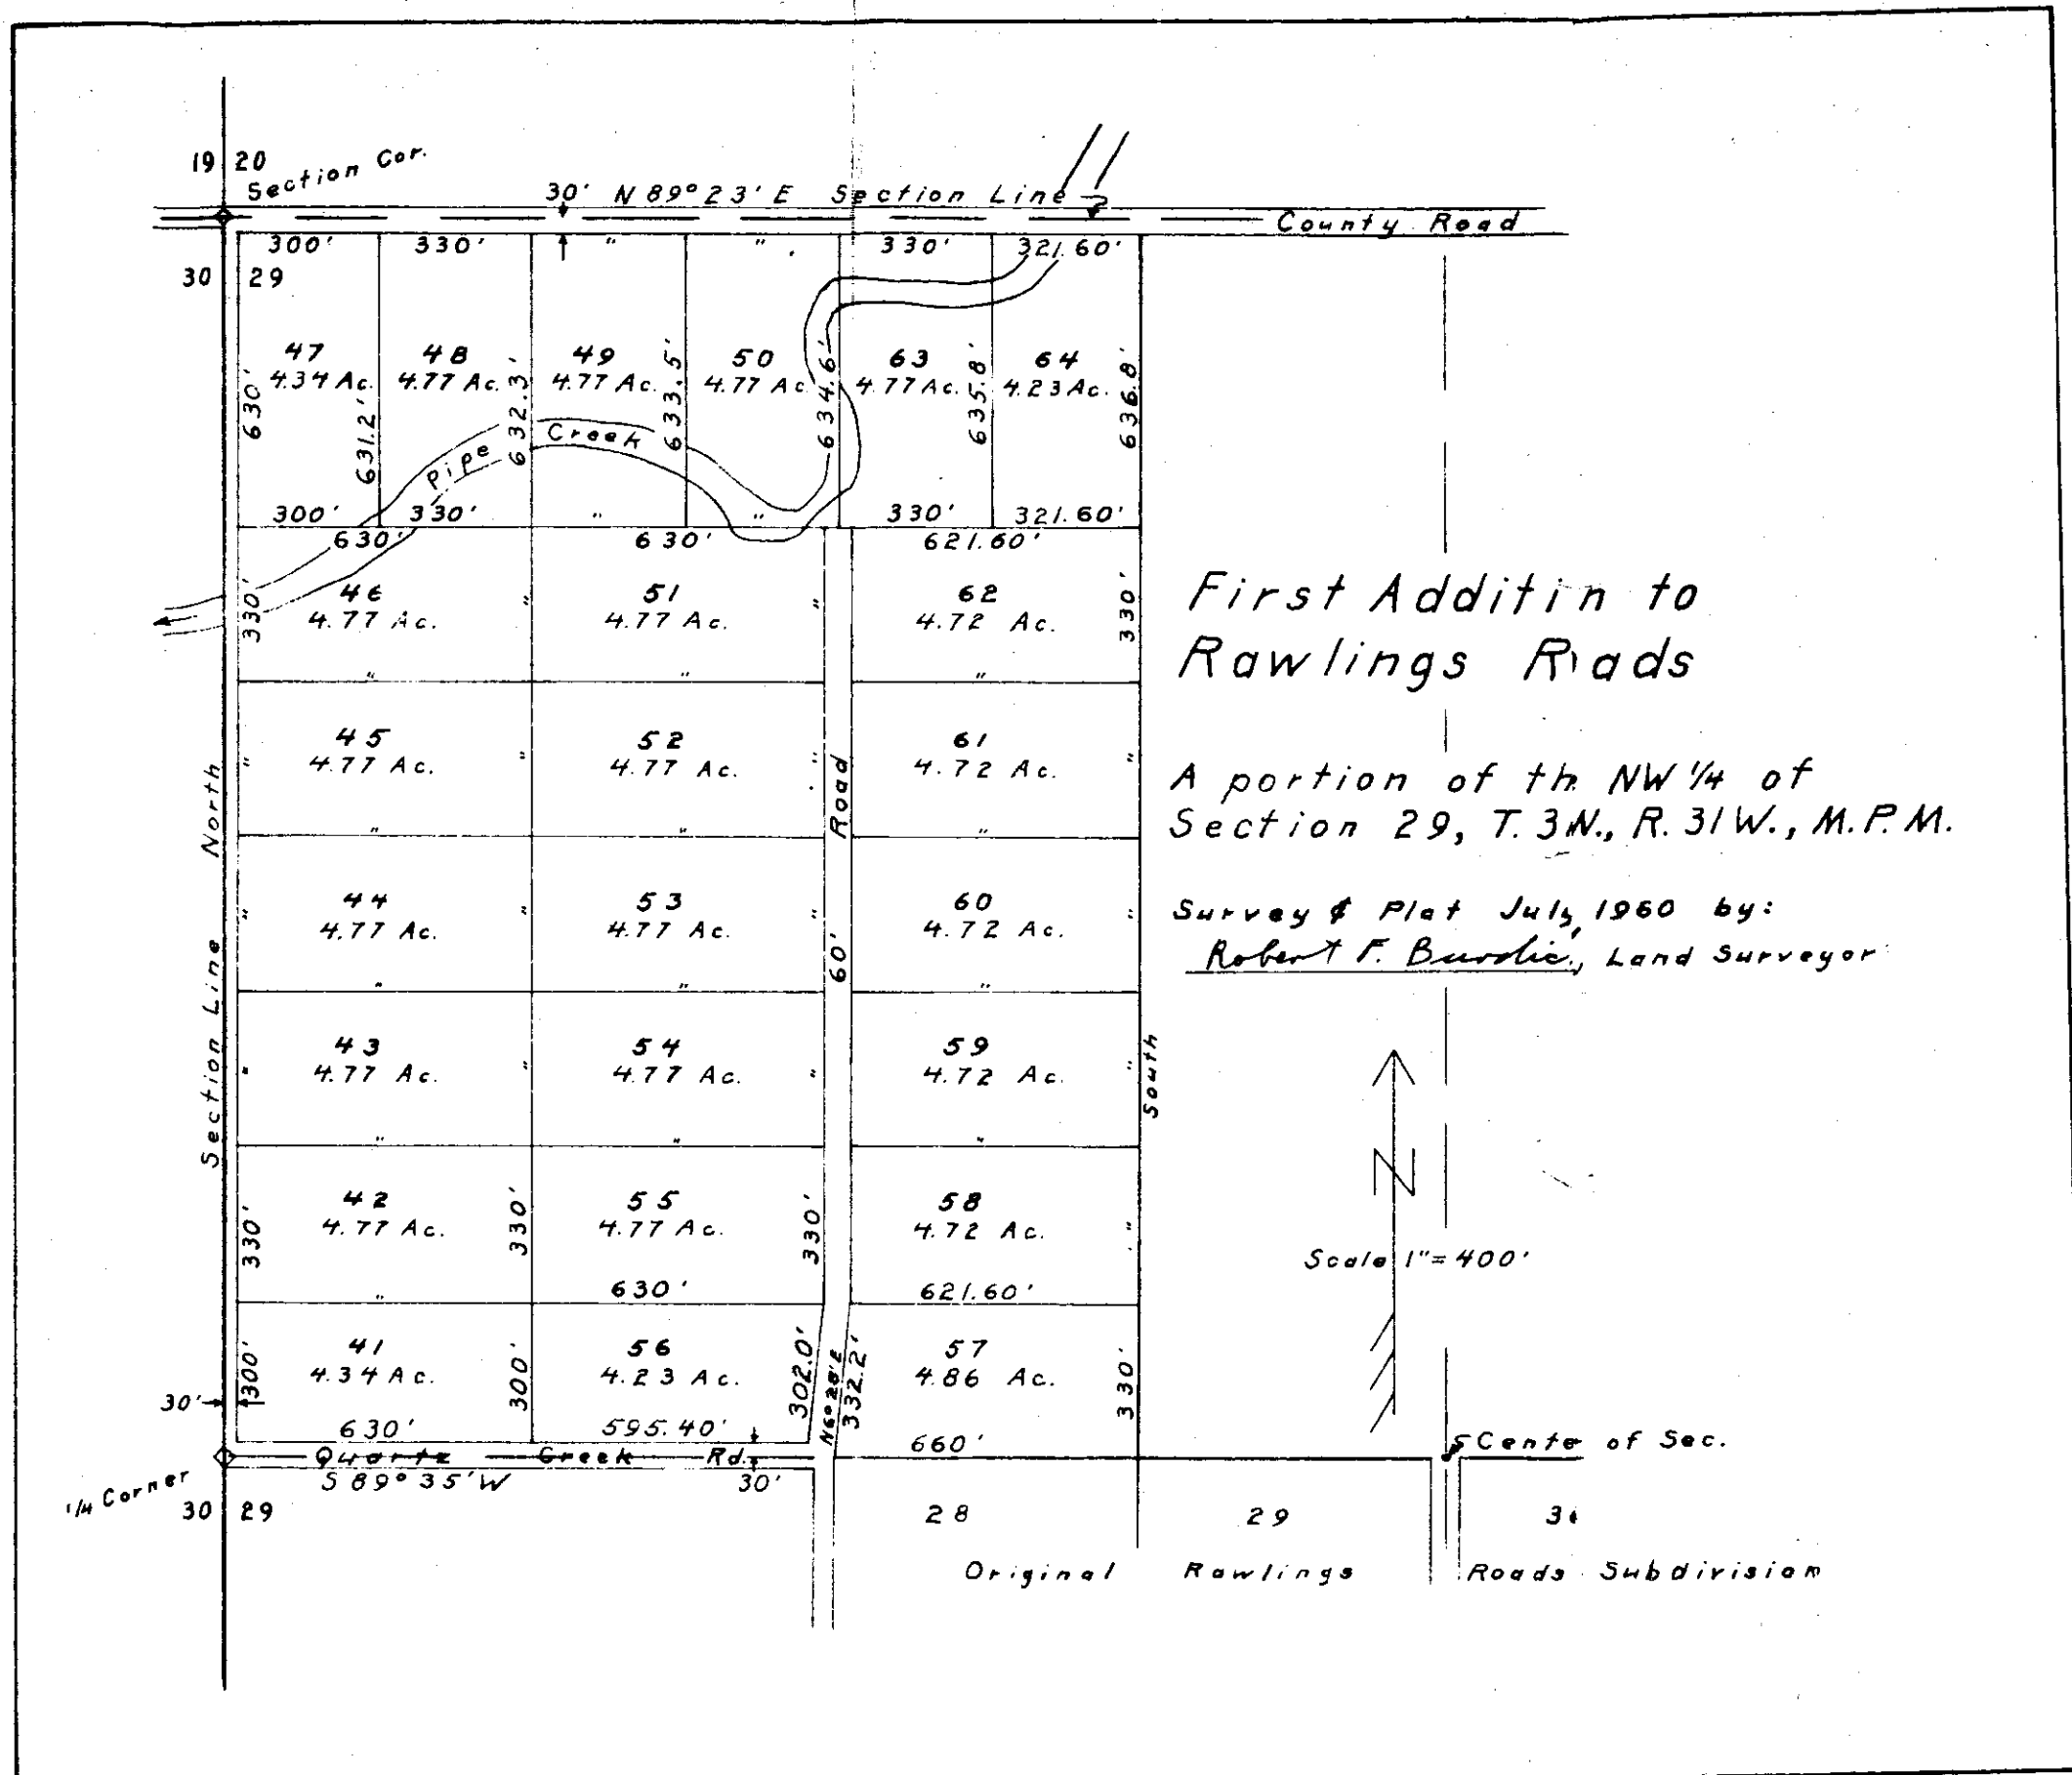 19 20
Section Cor.
30' N 89° 23' E Section Line
County Road
300' 330' " " 330' 321.60'
30 29
47 48 49 50 63 64
4.34 Ac. 4.77 Ac. 4.77 Ac. 4.77 Ac. 4.77 Ac. 4.23 Ac.
630' 631.2' 632.3' 633.5' 634.6' 635.8' 636.8'
Pipe Creek
300' 330' " " 330' 321.60'
630' 630' 621.60'
46 51 62
4.77 Ac. 4.77 Ac. 4.72 Ac.
330' " " 330'
" " "
45 52 61
4.77 Ac. 4.77 Ac. 4.72 Ac.
" " " "
" " "
44 53 60
4.77 Ac. 4.77 Ac. 4.72 Ac.
" " " "
" " "
43 54 59
4.77 Ac. 4.77 Ac. 4.72 Ac.
" " " "
" " "
42 55 58
4.77 Ac. 4.77 Ac. 4.72 Ac.
330' 330' 330' "
" 630' 621.60'
41 56 57
4.34 Ac. 4.23 Ac. 4.86 Ac.
300' 300' 302.0' N6°28'E 332.2' 330'
30'
630' 595.40' 660'
Quartz Creek Rd.
S 89° 35' W 30'
1/4 Corner
30 29
Section Line North
60' Road
South
First Additin to
Rawlings R ads
A portion of th NW 1/4 of
Section 29, T. 3N., R. 31W., M.P.M.
Survey & Plat July, 1960 by:
Robert F. Burdic, Land Surveyor
N
Scale 1"= 400'
Cente of Sec.
28 29
Original Rawlings Roads Subdivision